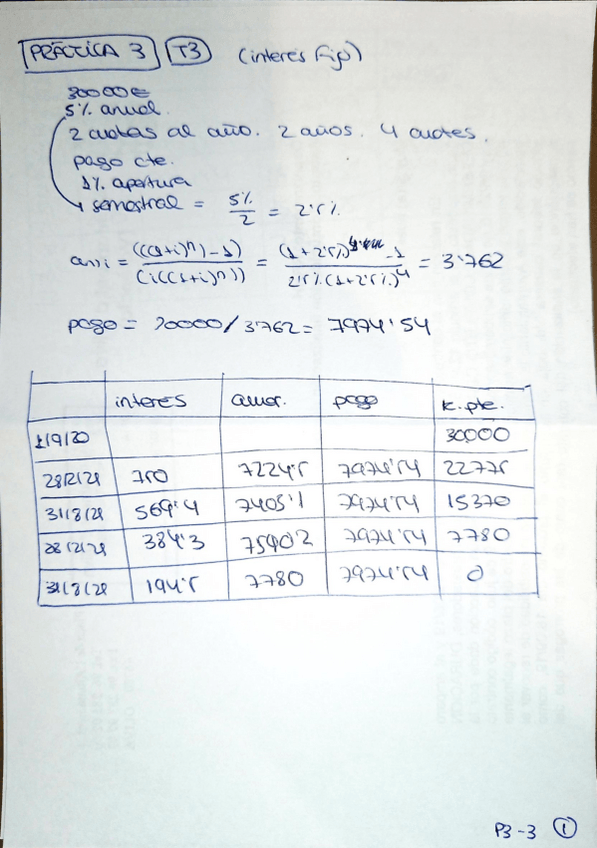 PRÁCTICA 3 T3 (interés fijo)
30000€
5% anual.
2 cuotas al año. 2 años. 4 cuotas.
pago cte.
1% apertura
semestral = 5%/2 = 2'5%
an¬i = (((1+i)^n)-1)/(i((1+i)^n)) = (1+2'5%)^4-1/2'5%(1+2'5%)^4 = 3'762
pago = 30000/3'762 = 7974'54
interés amor. pago k. pte.
1/9/20 30000
28/2/21 750 7224'5 7974'54 22775
31/8/21 569'4 7405'1 7974'54 15370
28/2/21 384'3 7590'2 7974'54 7780
31/8/21 194'5 7780 7974'54 0
P3-3 1